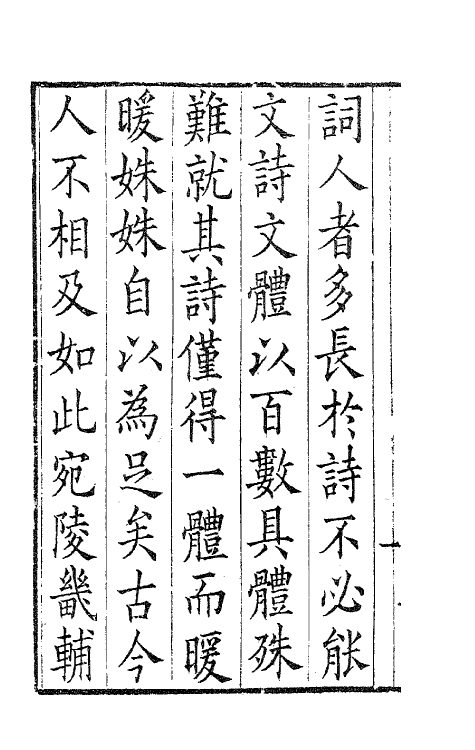 詞人者多長於詩不必能
文詩文體以百數具體殊
難就其詩僅得一體而暖
暖姝姝自以為足矣古今
人不相及如此宛陵畿輔